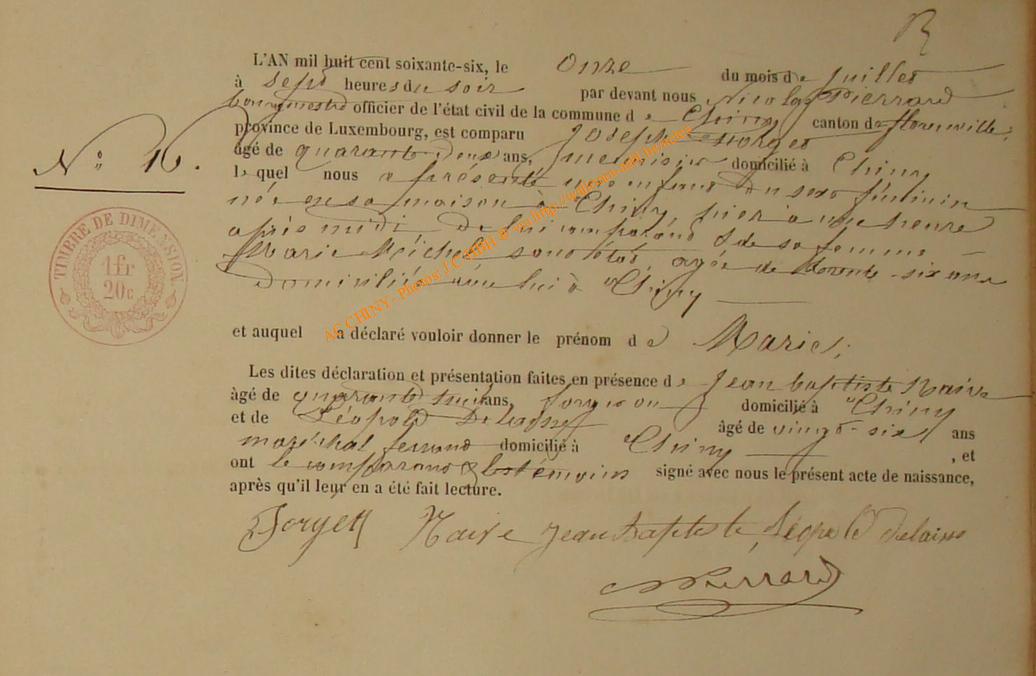 L'AN mil huit cent soixante-six, le onze du mois de juillet
à sept heures du soir par devant nous Nicolas Pierrard
bourgmestre officier de l'état civil de la commune de Chiny canton de florenville
province de Luxembourg, est comparu Joseph
âgé de quarante deux ans, menuisier domicilié à Chiny
le quel nous a présenté une enfant du sexe féminin
née en sa maison à Chiny, hier à une heure
après midi, de lui comparant & de sa femme
Marie Michel sans état, agée de trente-six ans
domiciliée avec lui à Chiny
N° 16.
TIMBRE DE DIMENSION
1 fr
20 c
et auquel a déclaré vouloir donner le prénom de Marie,
Les dites déclaration et présentation faites en présence de Jean baptiste Naive
âgé de quarante huit ans, domicilié à Chiny
et de Léopold âgé de vingt-six ans
maréchal ferrand domicilié à Chiny , et
ont le comparant & les témoins signé avec nous le présent acte de naissance,
après qu'il leur en a été fait lecture.
Naive jean baptiste Léopold delaisse
NPierrard
AC CHINY - Photos J.C.